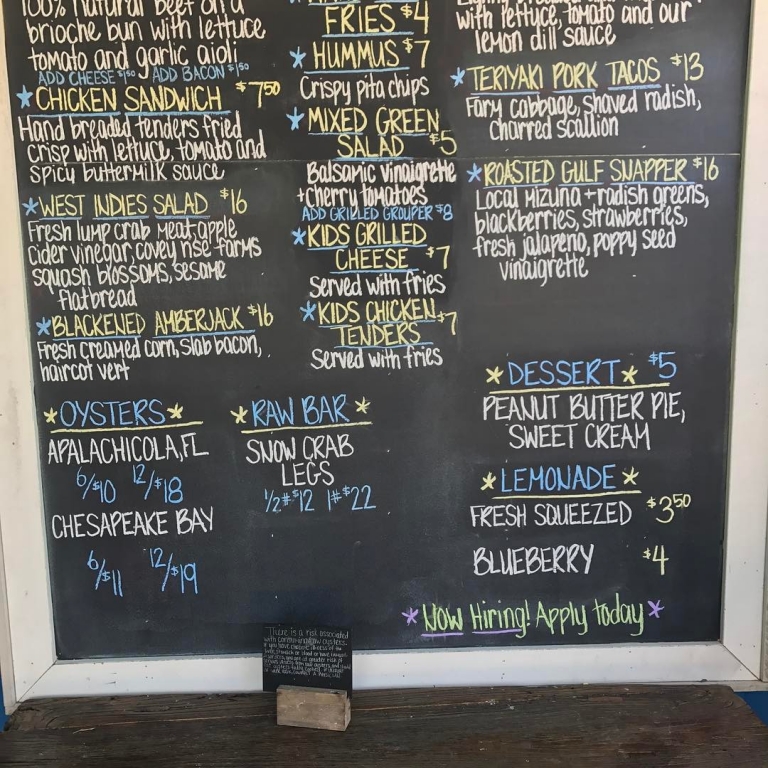 100% natural beef on a
brioche bun with lettuce
tomato and garlic aioli
ADD CHEESE $1.50 ADD BACON $1.50
CHICKEN SANDWICH $7.50
Hand breaded tenders fried
crisp with lettuce, tomato and
spicy buttermilk sauce
WEST INDIES SALAD $16
Fresh lump crab meat, apple
cider vinegar, covey rise farms
squash blossoms, sesame
flatbread
BLACKENED AMBERJACK $16
Fresh creamed corn, slab bacon,
haircot vert
FRIES $4
HUMMUS $7
Crispy pita chips
MIXED GREEN
SALAD $5
Balsamic vinaigrette
+cherry tomatoes
ADD GRILLED GROUPER $8
KIDS GRILLED
CHEESE $7
Served with fries
KIDS CHICKEN
TENDERS $7
Served with fries
with lettuce, tomato and our
lemon dill sauce
TERIYAKI PORK TACOS $13
Farm cabbage, shaved radish,
charred scallion
ROASTED GULF SNAPPER $16
Local mizuna + radish greens,
blackberries, strawberries,
fresh jalapeno, poppy seed
vinaigrette
OYSTERS
APALACHICOLA, FL
6/$10 12/$18
CHESAPEAKE BAY
6/$11 12/$19
RAW BAR
SNOW CRAB
LEGS
1/2# $12 1# $22
DESSERT $5
PEANUT BUTTER PIE,
SWEET CREAM
LEMONADE
FRESH SQUEEZED $3.50
BLUEBERRY $4
Now Hiring! Apply today
There is a risk associated
with consuming raw oysters.